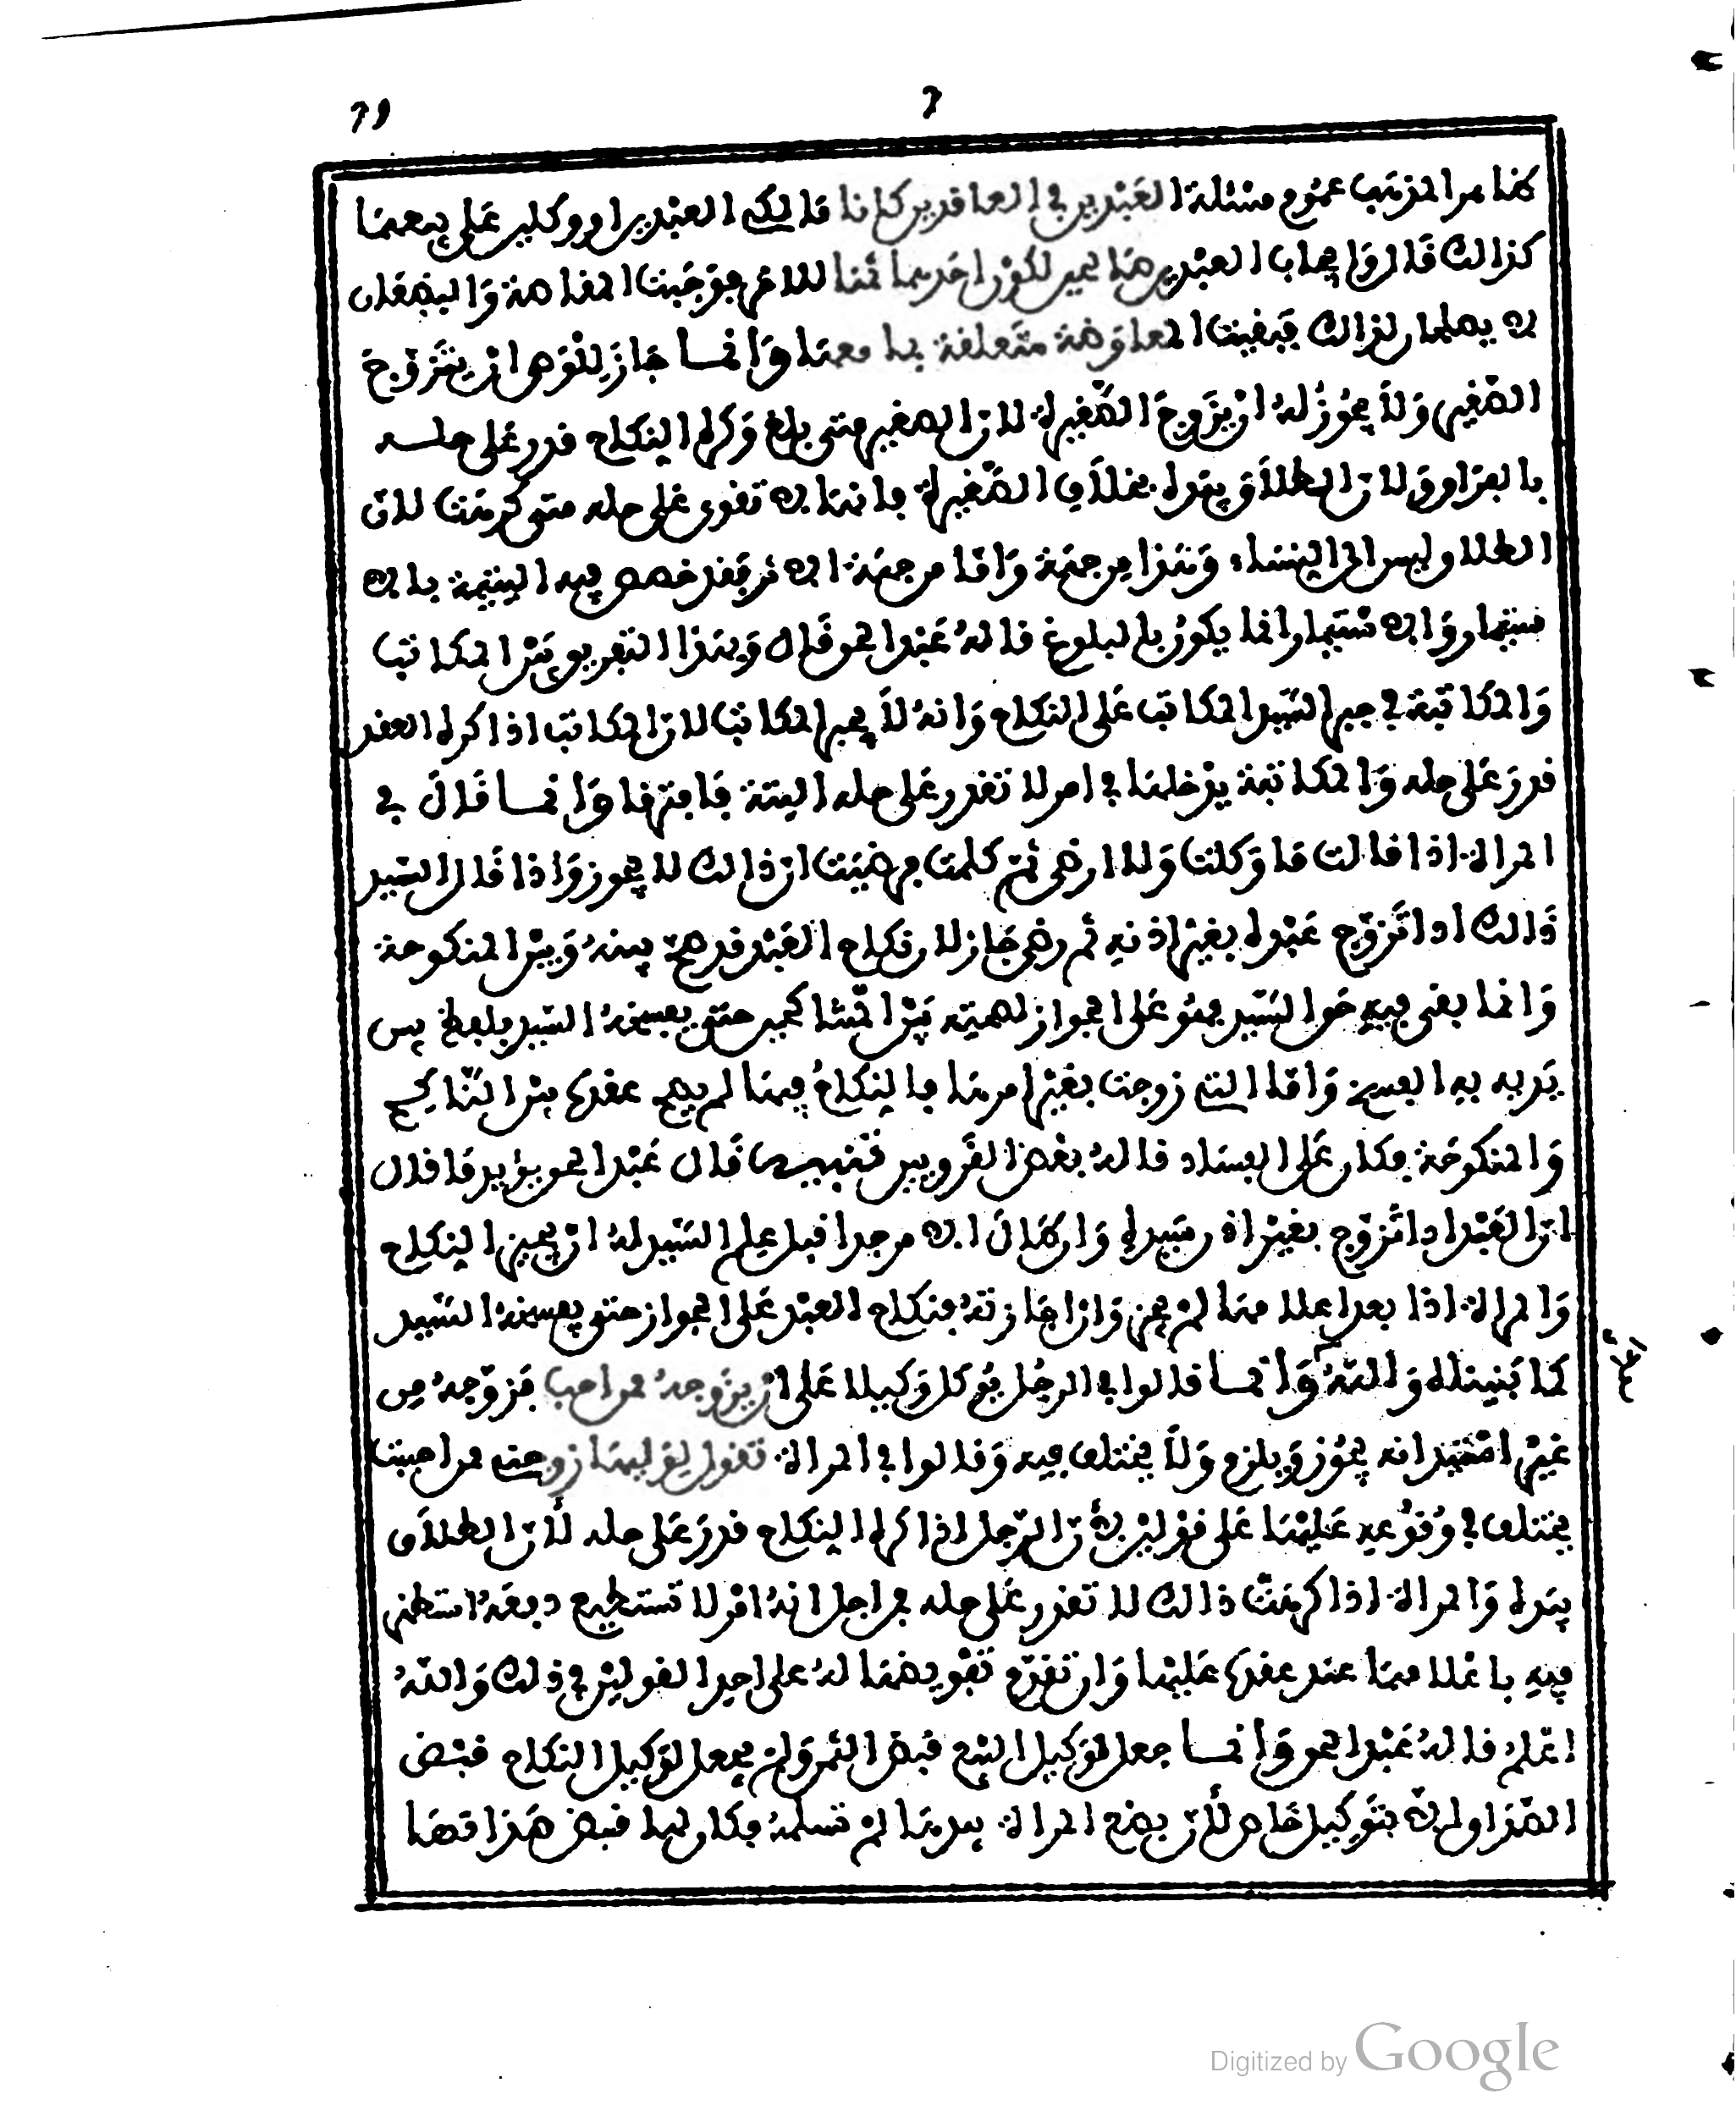 79
كما مر المذهب عموم مسئلة العبدين في العاقدين كانا مالكي العبدين او وكلين على بيعهما
كذالك قال وايجاب العبدين هنا لكون احدهما ثمنا للاخر فوجبت المفاصة والبضعان
لا يصلحان لذالك فبقيت المعاوضة متعلقة بهما معها وانما جاز للوصي ان يتزوج
الصغير ولا يجوز له ان يزوج الصغيرة لان الصغير متى بلغ وكره النكاح قدر على حله
بالفراق لان الطلاق بيده بخلاف الصغيرة فانها لا تقوى على حله متى كرهت لان
الطلاق ليس الى النساء وهذا من جهة واما من جهة الاثر فقد خصص فيه اليتيمة بالا
ستيمار والاستيمار انما يكون بالبلوغ قاله عبد الحق قال وبهذا التفريق بين المكاتب
والمكاتبة في جبر السيد المكاتب على النكاح وانه لا يجبر المكاتب لان المكاتب اذا كره العقد
قدر على حله والمكاتبة يدخلها في امر لا تقدر على حله البتة فافترقا وانما قال في
المراة اذا قالت ما وكلت ولا ارضى ثم كلمت فرضيت ان ذالك لا يجوز واذا قال السيد
ذالك اذا تزوج عبده بغير اذنه ثم رضي جاز لان نكاح العبد قد صح بينه وبين المنكوحة
وانما بقي فيه حق السيد فهو على الجواز لصحته بين المتناكحين حتى يفسخه السيد بلفظ بين
يريد به الفسخ واما التي زوجت بغير امرها فالنكاح فيها لم يصح عقده بين الناكح
والمنكوحة فكان على الفساد قاله بعض القرويين تنبيه قال عبد الحق يؤيد ما قال
ان العبد اذا تزوج بغير اذن سيده وان كان الا من جدا قبل علم السيد له ان يجيز النكاح
والمراة اذا بعد اعلامها لم يجز وان اجازته فنكاح العبد على الجواز حتى يفسخه السيد
كما بيناه والله وانما قالوا في الرجل يوكل وكيلا على ان يزوجه ممن احب فزوجه من
غير استيذانه يجوز ويلزم ولا يختلف فيه وقالوا في المراة تقول لوليها زوجني ممن احببت
يختلف في وقوعه عليها على قولين لان الرجل اذا كره النكاح قدر على حله لأن الطلاق
بيده والمراة اذا كرهت ذالك لا تقدر على حله فمن اجل انه امر لا تستطيع دفعه استظهر
فيه باعلامها عند عقده عليها وان تقدم تفويضها له على احد القولين في ذلك والله
اعلم قاله عبد الحق وانما جعل لوكيل البيع قبض الثمن ولم يجعل لوكيل النكاح قبض
الصداق الا بتوكيل خاص لأن بضع المراة بيدها لم تسلمه فكان لها قبض هذا قصا